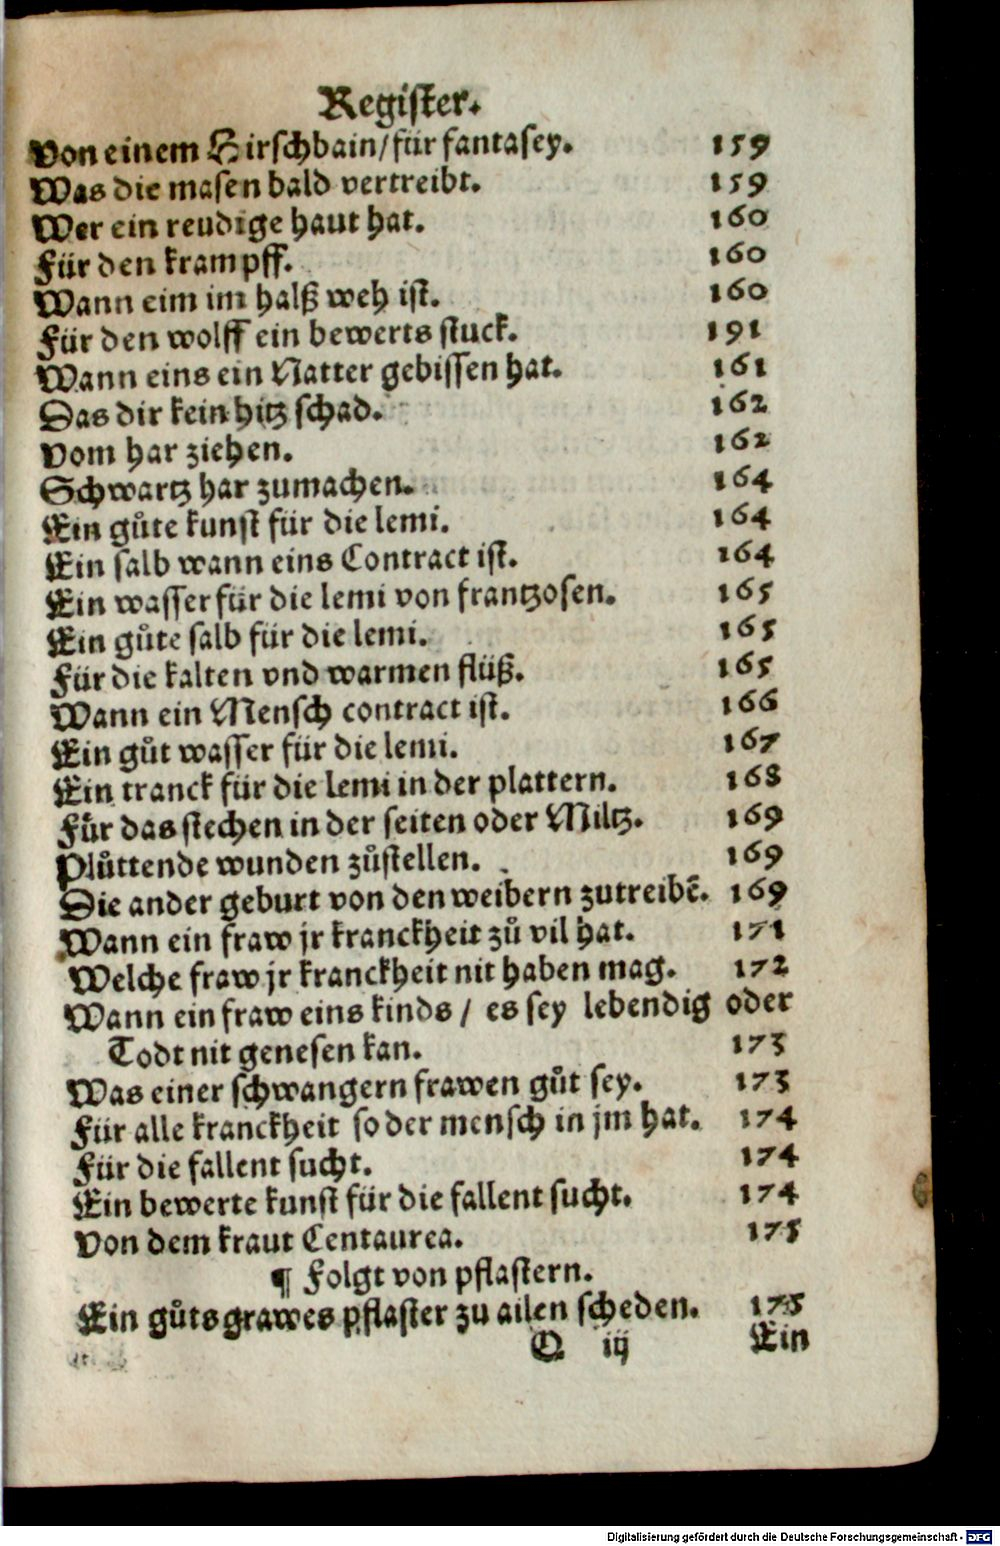 Register.
Von einem Hirschbain/für fantasey. 159
Was die masen bald vertreibt. 159
Wer ein reudige haut hat. 160
Für den krampff. 160
Wann eim im halß weh ist. 160
Für den wolff ein bewerts stuck. 191
Wann eins ein Natter gebissen hat. 161
Das dir kein hitz schad. 162
Vom har ziehen. 162
Schwartz har zumachen. 164
Ein gůte kunst für die lemi. 164
Ein salb wann eins Contract ist. 164
Ein wasser für die lemi von frantzosen. 165
Ein gůte salb für die lemi. 165
Für die kalten vnd warmen flüß. 165
Wann ein Mensch contract ist. 166
Ein gůt wasser für die lemi. 167
Ein tranck für die lemi in der plattern. 168
Für das stechen in der seiten oder Miltz. 169
Plůttende wunden zůstellen. 169
Die ander geburt von den weibern zutreibẽ. 169
Wann ein fraw jr kranckheit zů vil hat. 171
Welche fraw jr kranckheit nit haben mag. 172
Wann ein fraw eins kinds / es sey lebendig oder
Todt nit genesen kan. 173
Was einer schwangern frawen gůt sey. 173
Für alle kranckheit so der mensch in jm hat. 174
Für die fallent sucht. 174
Ein bewerte kunst für die fallent sucht. 174
Von dem kraut Centaurea. 175
¶ Folgt von pflastern.
Ein gůts grawes pflaster zu allen scheden. 175
Q iij Ein
Digitalisierung gefördert durch die Deutsche Forschungsgemeinschaft - DFG